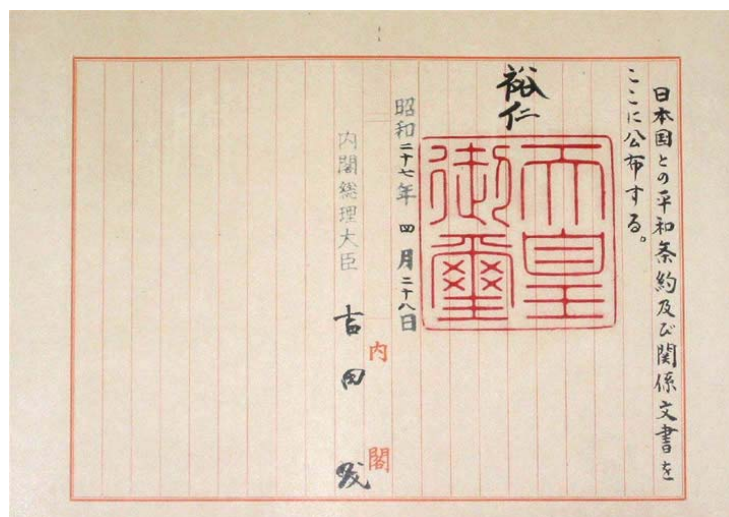 日本国との平和条約及び関係文書を
ここに公布する。
裕仁
天皇
御璽
昭和二十七年四月二十八日
内閣
内閣総理大臣 吉田茂